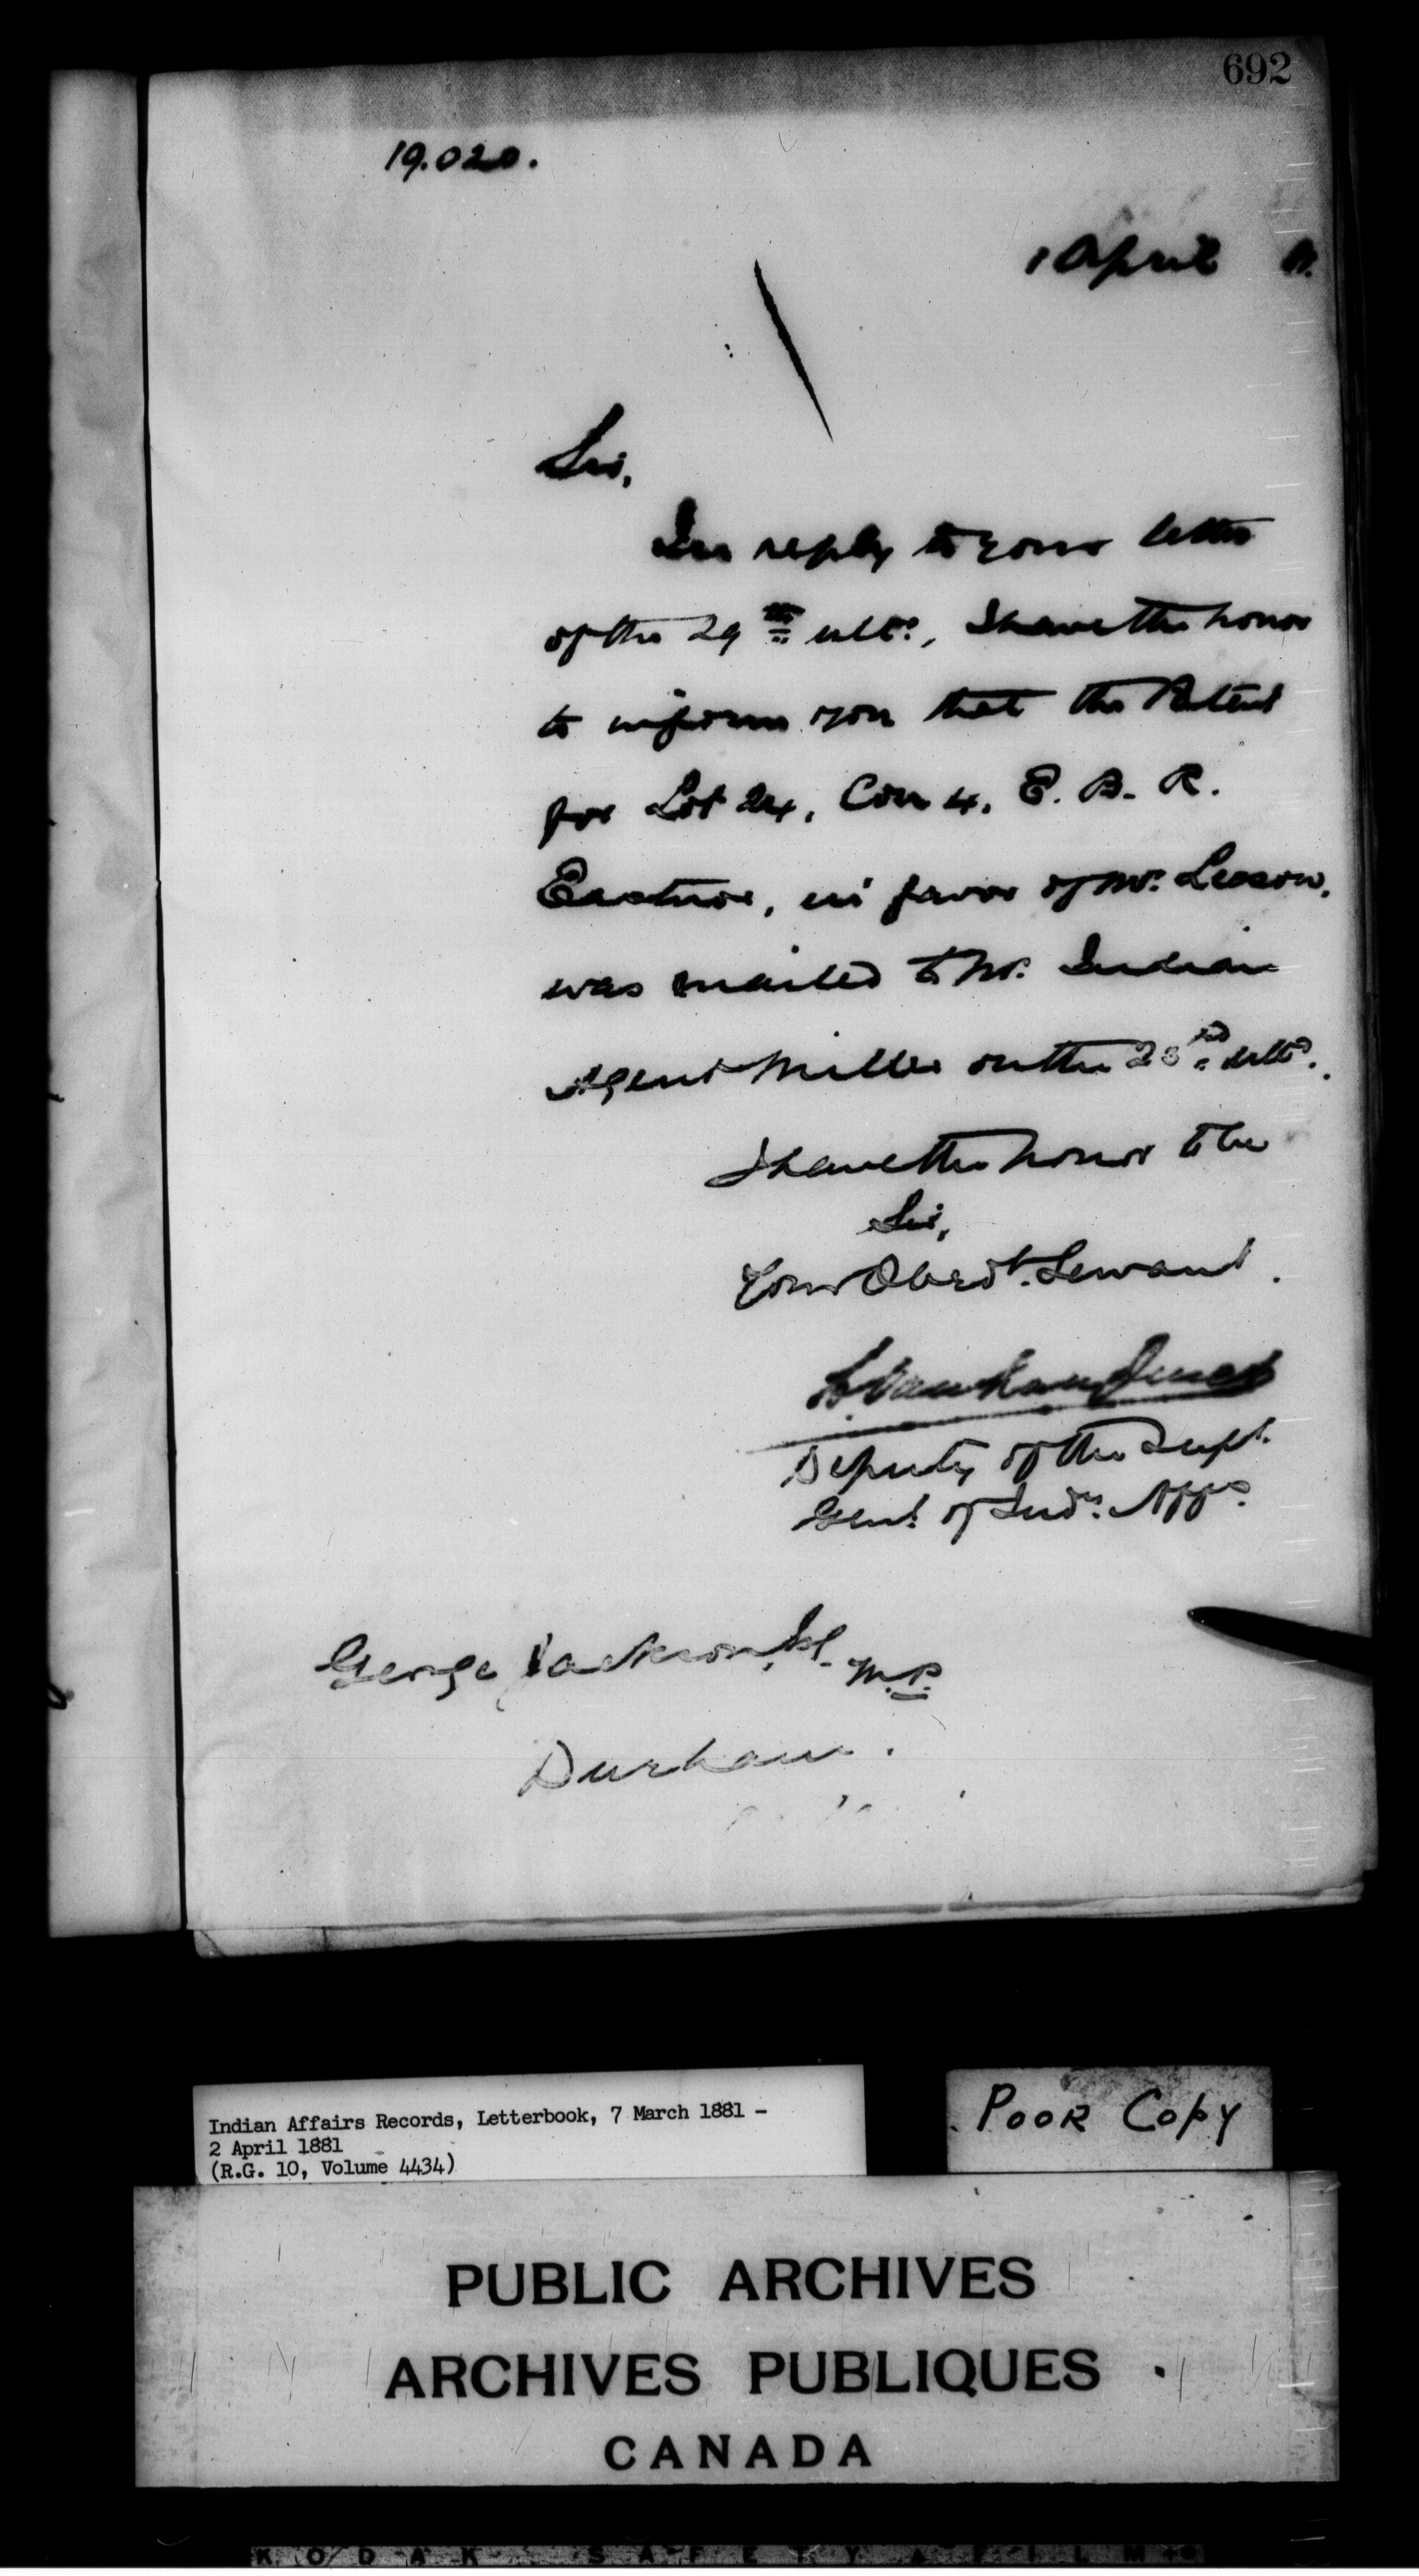 692
19.020.
1 April
Sir,
In reply to your letter
of the 29th ulto., I have the honor
to inform you that the Patent
for Lot 24, Con 4, E. B. R.
Eastnor, in favor of Mr. Leeson,
was mailed to Mr. Indian
Agent Miller on the 23rd ulto.
I have the honor to be
Sir,
Your Obedt. Servant.
L. Vankoughnet
Deputy of the Supt.
Genl. of Indn. Affs.
George Jackson, Esq. M.P.
Durham.
Indian Affairs Records, Letterbook, 7 March 1881 -
2 April 1881
(R.G. 10, Volume 4434)
POOR COPY
PUBLIC ARCHIVES
ARCHIVES PUBLIQUES
CANADA
KODAK SAFETY FILM